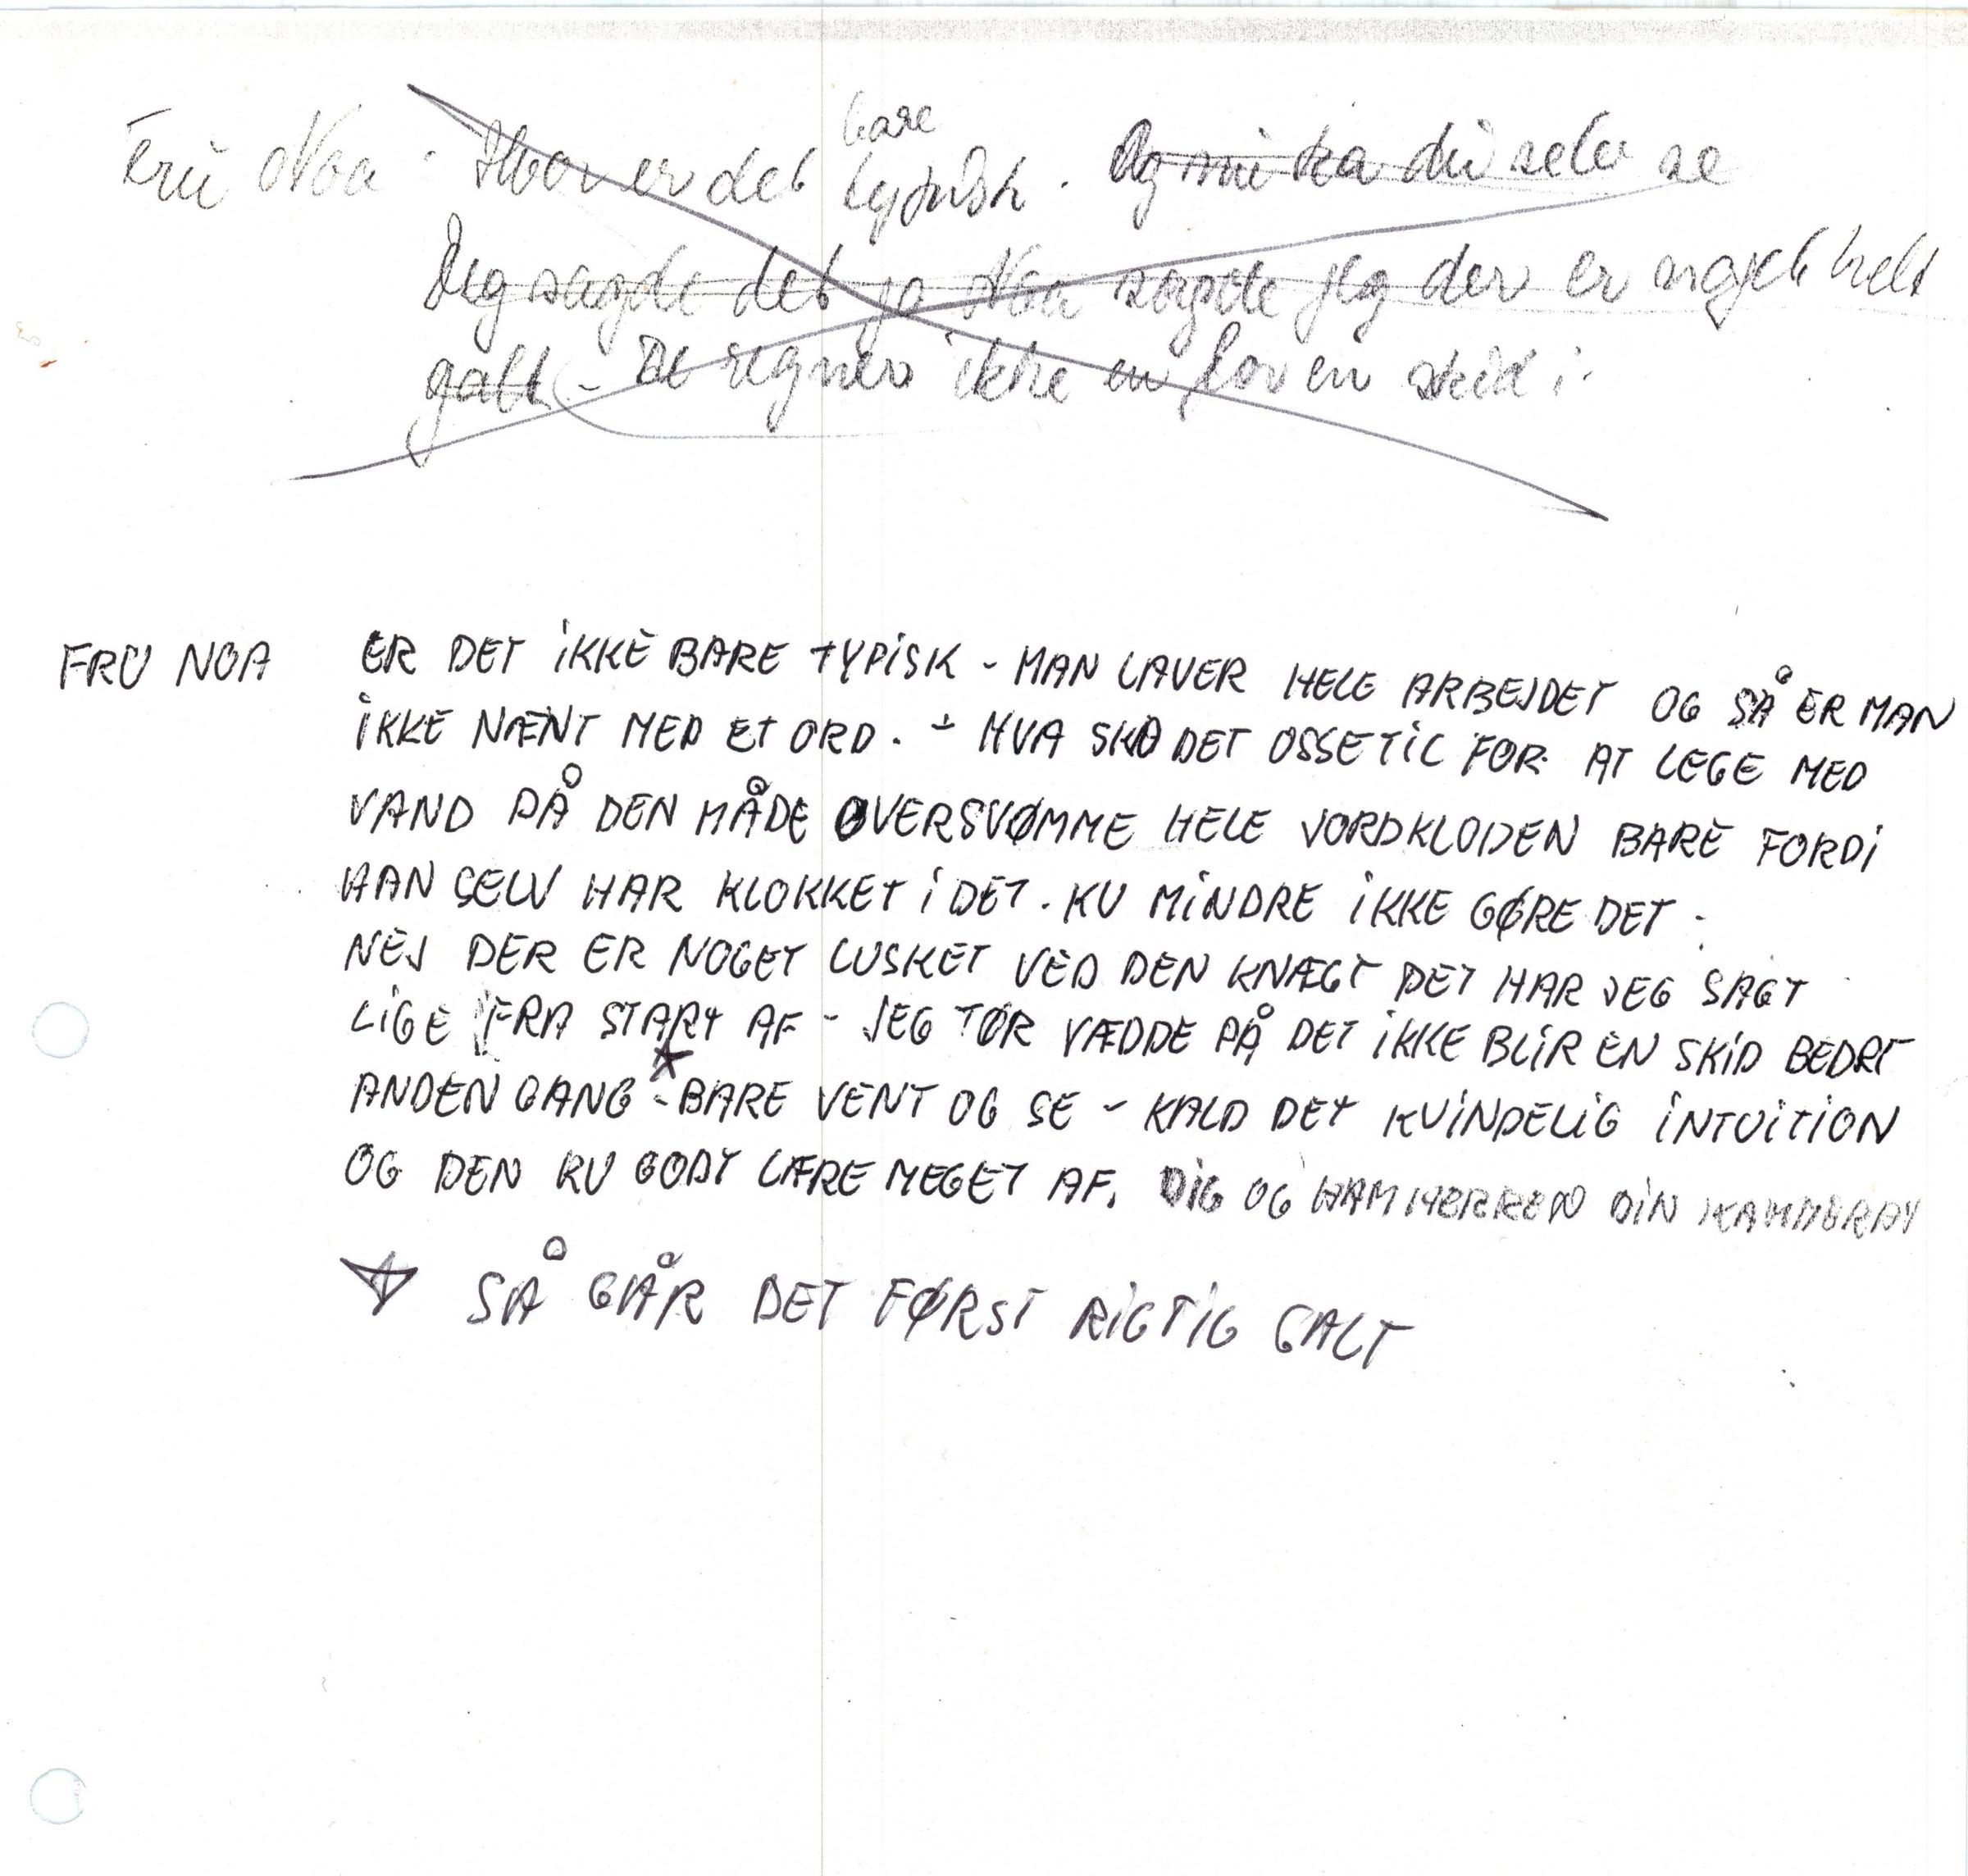 bare
Fru Noa - Hvor er det typisk. Og nu ka du selv se
Jeg sagde det jo Noa sagde jeg der er noget helt
galt - De regner ikke en for en skid i-
FRU NOA ER DET IKKE BARE TYPISK - MAN LAVER HELE ARBEJDET OG SÅ ER MAN
IKKE NÆNT MED ET ORD. - HVA SKO DET OSSE TIL FOR AT LEGE MED
VAND PÅ DEN MÅDE OVERSVØMME HELE JORDKLODEN BARE FORDI
HAN SELV HAR KLOKKET I DET. KU MINDRE IKKE GØRE DET.
NEJ DER ER NOGET LUSKET VED DEN KNÆGT DET HAR JEG SAGT
LIGE FRA START AF - JEG TØR VÆDDE PÅ DET IKKE BLIR EN SKID BEDRE
ANDEN GANG - BARE VENT OG SE - KALD DET KVINDELIG INTUITION
OG DEN KU GODT LÆRE MEGET AF. DIG OG HAM HERREN DIN KAMMERAT
☆ SÅ GÅR DET FØRST RIGTIG GALT